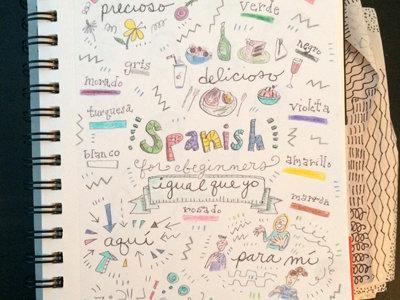 precioso
verde
gris
negro
delicioso
morado
turquesa
violeta
Spanish
blanco
for beginners
amarillo
igual que yo
marrón
rosado
aquí
para mí